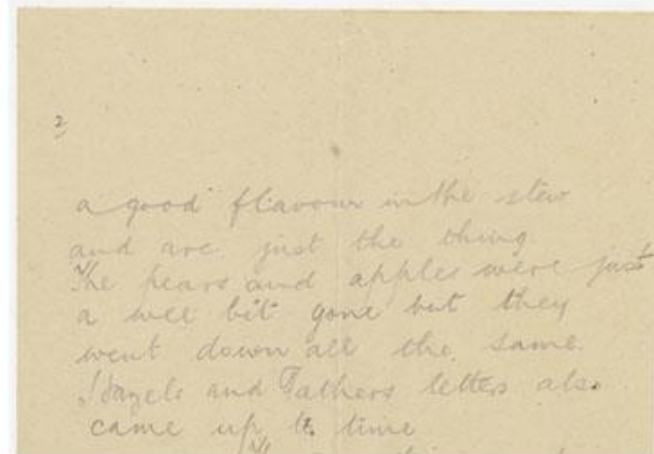 2
a good flavour in the stew
and are just the thing.
The pears and apples were just
a wee bit gone but they
went down all the same.
Hazels and Fathers letters also
came up to time